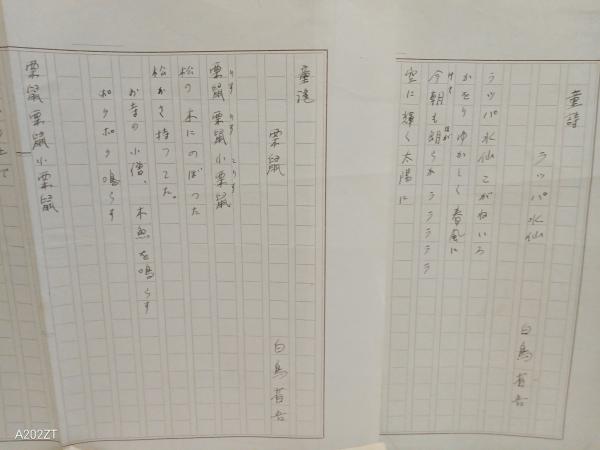 童詩
ラッパ水仙
白鳥省吾
ラッパ水仙こがねいろ
かをりゆかしく春風に
今朝も朗らかラララララ
けさ
ほが
空に輝く太陽に
童謡
栗鼠
白鳥省吾
栗鼠栗鼠小栗鼠
りす りす こりす
松の木にのぼつた
松かさ持つてた。
お寺の小僧、木魚を鳴らす
ポクポク鳴らす
栗鼠栗鼠小栗鼠
A202ZT